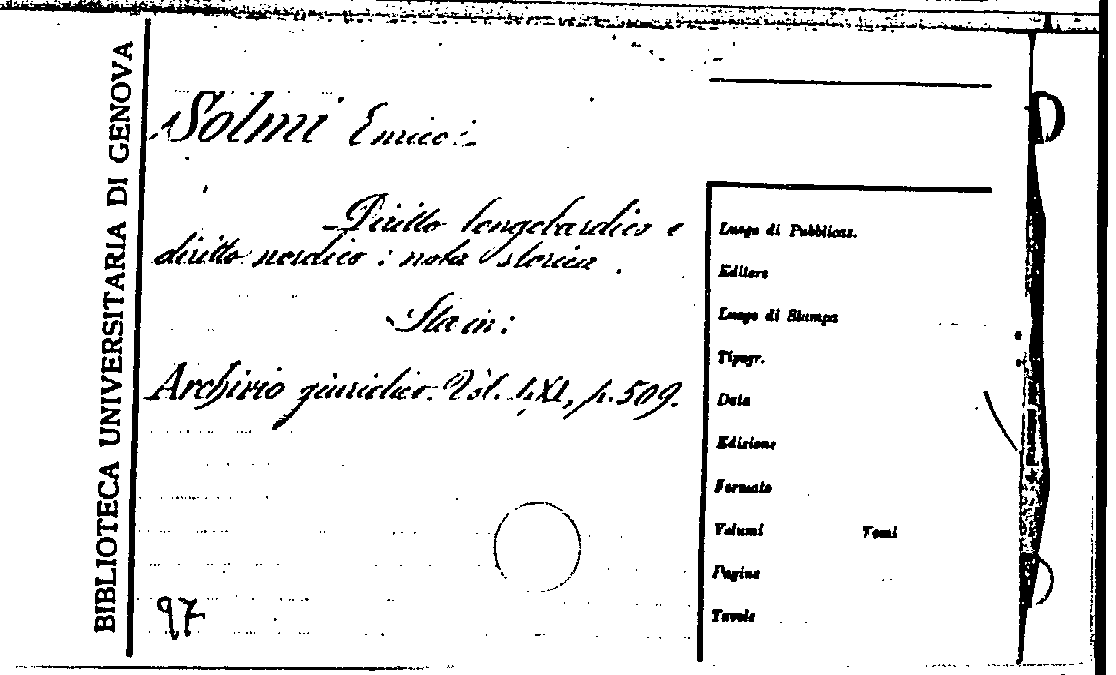 BIBLIOTECA UNIVERSITARIA DI GENOVA
Solmi Enrico:
Diritto longobardico e
diritto nordico: nota storica.
Sta in:
Archivio giuridico. Vol. LXI, p. 509.
97
Luogo di Pubblicaz.
Editore
Luogo di Stampa
Tipogr.
Data
Edizione
Formato
Volumi Tomi
Pagine
Tavole